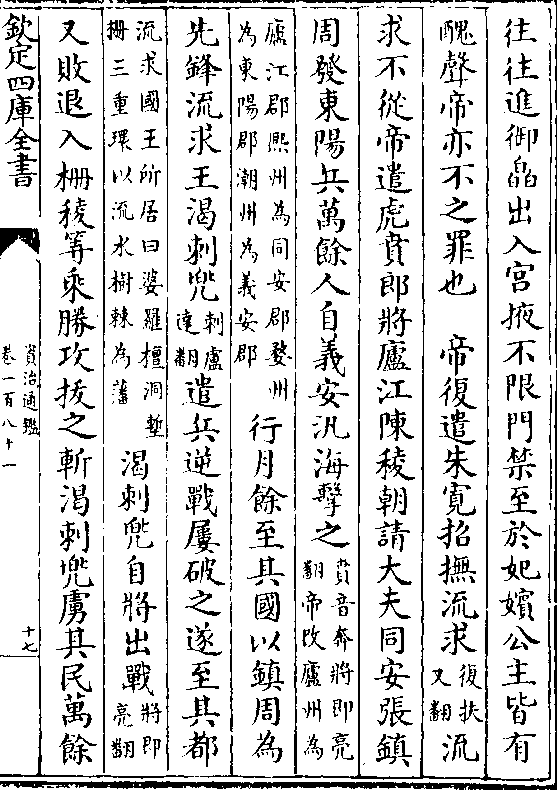 往往進御皛出入宮掖不限門禁至於妃嬪公主皆有
醜聲帝亦不之罪也　帝復遣朱寛招撫流求復扶又翻流
求不從帝遣虎賁郎將廬江陳稜朝請大夫同安張鎮
周發東陽兵萬餘人自義安汎海擊之賁音奔將即亮翻帝改廬州為
廬江郡熙州為同安郡婺州為東陽郡潮州為義安郡行月餘至其國以鎮周為
先鋒流求王渴刺兜刺盧達翻遣兵逆戰屢破之遂至其都
流求國王所居曰婆羅檀洞塹柵三重環以流水樹棘為藩渴刺兜自將出戰將即亮翻
又敗退入柵稜等乘勝攻拔之斬渴刺兜虜其民萬餘
欽定四庫全書
資治通鑑
卷一百八十一
十七